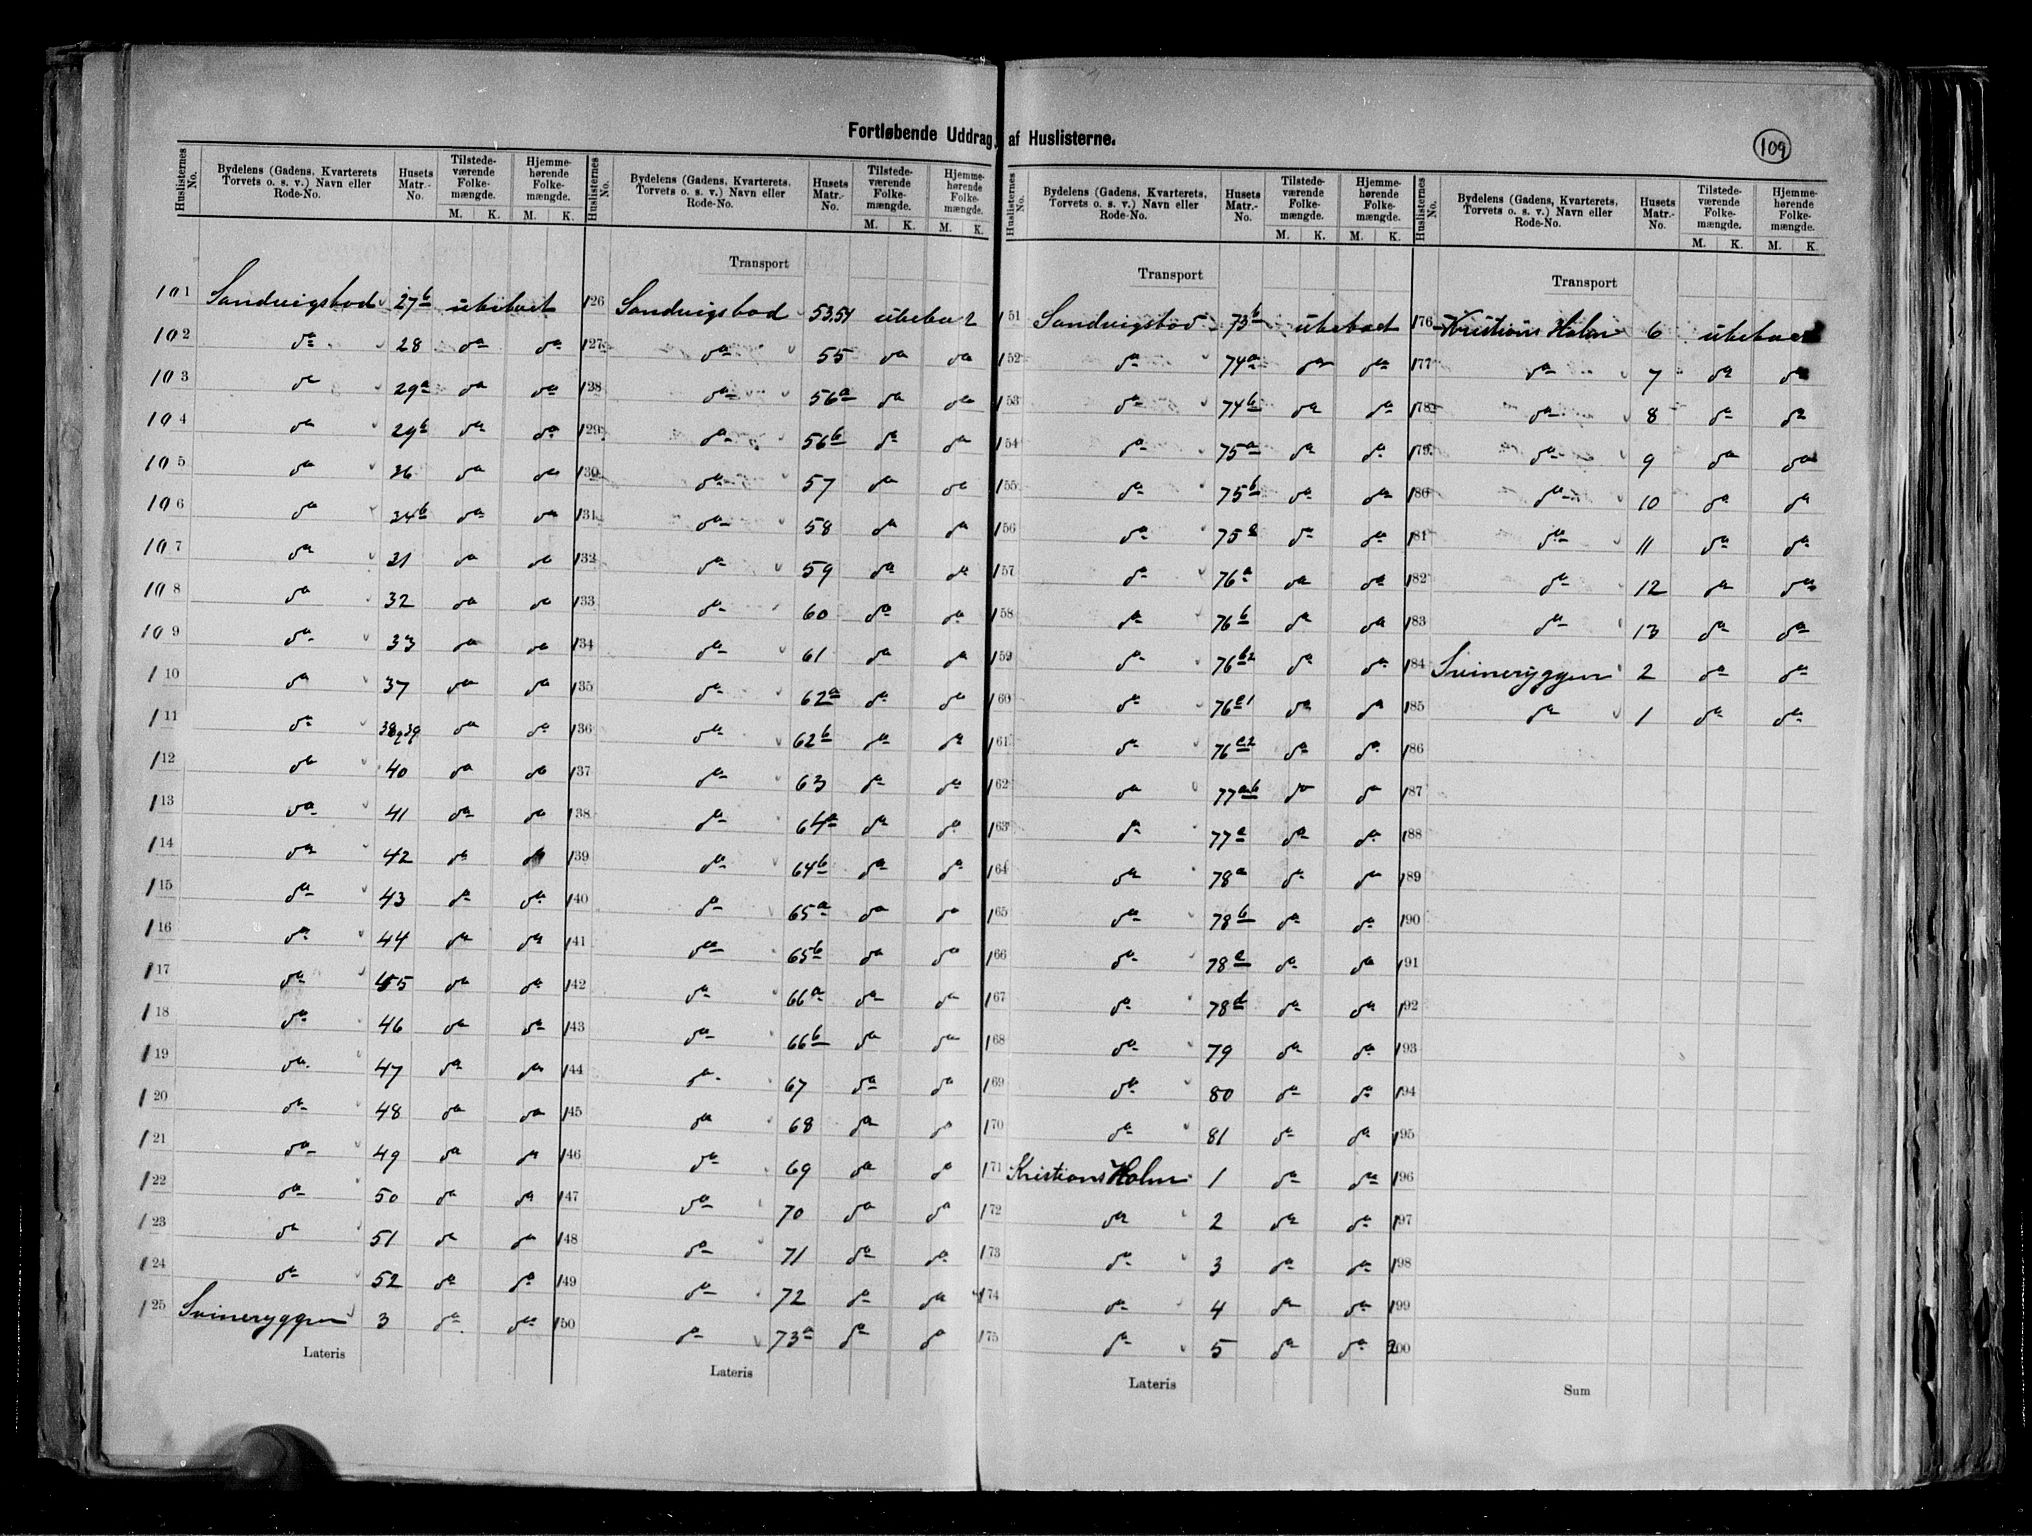 Fortløbende Uddrag af Huslisterne.
109
Huslisternes No. Bydelens (Gadens, Kvarterets, Torvets o. s. v.) Navn eller Rode-No. Husets Matr.-No. Tilstede-værende Folke-mængde. M. K. Hjemme-hørende Folke-mængde. M. K.
101 Sandvigsbod 27b ubeboet
102 da 28 da da
103 da 29a da da
104 da 29b da da
105 da 36 da da
106 da 34b da da
107 da 31 da da
108 da 32 da da
109 da 33 da da
110 da 37 da da
111 da 38 39 da da
112 da 40 da da
113 da 41 da da
114 da 42 da da
115 da 43 da da
116 da 44 da da
117 da 45 da da
118 da 46 da da
119 da 47 da da
120 da 48 da da
121 da 49 da da
122 da 50 da da
123 da 51 da da
124 da 52 da da
125 Svineryggen 3 da da
Lateris
Huslisternes No. Bydelens (Gadens, Kvarterets, Torvets o. s. v.) Navn eller Rode-No. Husets Matr.-No. Tilstede-værende Folke-mængde. M. K. Hjemme-hørende Folke-mængde. M. K.
Transport
126 Sandvigsbod 53.54 ubeboet
127 da 55 da da
128 da 56a da da
129 da 56b da da
130 da 57 da da
131 da 58 da da
132 da 59 da da
133 da 60 da da
134 da 61 da da
135 da 62a da da
136 da 62b da da
137 da 63 da da
138 da 64a da da
139 da 64b da da
140 da 65a da da
141 da 65b da da
142 da 66a da da
143 da 66b da da
144 da 67 da da
145 da 68 da da
146 da 69 da da
147 da 70 da da
148 da 71 da da
149 da 72 da da
150 da 73a da da
Lateris
Huslisternes No. Bydelens (Gadens, Kvarterets, Torvets o. s. v.) Navn eller Rode-No. Husets Matr.-No. Tilstede-værende Folke-mængde. M. K. Hjemme-hørende Folke-mængde. M. K.
Transport
151 Sandvigsbod 73b ubeboet
152 da 74a da da
153 da 74b da da
154 da 75a da da
155 da 75b da da
156 da 75c da da
157 da 76a da da
158 da 76b da da
159 da 76b2 da da
160 da 76c1 da da
161 da 76c2 da da
162 da 77ab da da
163 da 77c da da
164 da 78a da da
165 da 78b da da
166 da 78c da da
167 da 78d da da
168 da 79 da da
169 da 80 da da
170 da 81 da da
171 Kristians Holm 1 da da
172 da 2 da da
173 da 3 da da
174 da 4 da da
175 da 5 da da
Lateris
Huslisternes No. Bydelens (Gadens, Kvarterets, Torvets o. s. v.) Navn eller Rode-No. Husets Matr.-No. Tilstede-værende Folke-mængde. M. K. Hjemme-hørende Folke-mængde. M. K.
Transport
176 Kristians Holm 6 ubeboet
177 da 7 da da
178 da 8 da da
179 da 9 da da
180 da 10 da da
181 da 11 da da
182 da 12 da da
183 da 13 da da
184 Svineryggen 2 da da
185 da 1 da da
186
187
188
189
190
191
192
193
194
195
196
197
198
199
200
Sum